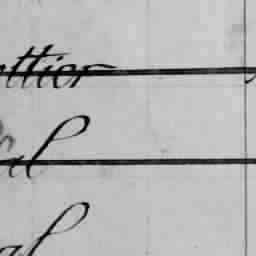 ttier
al
al